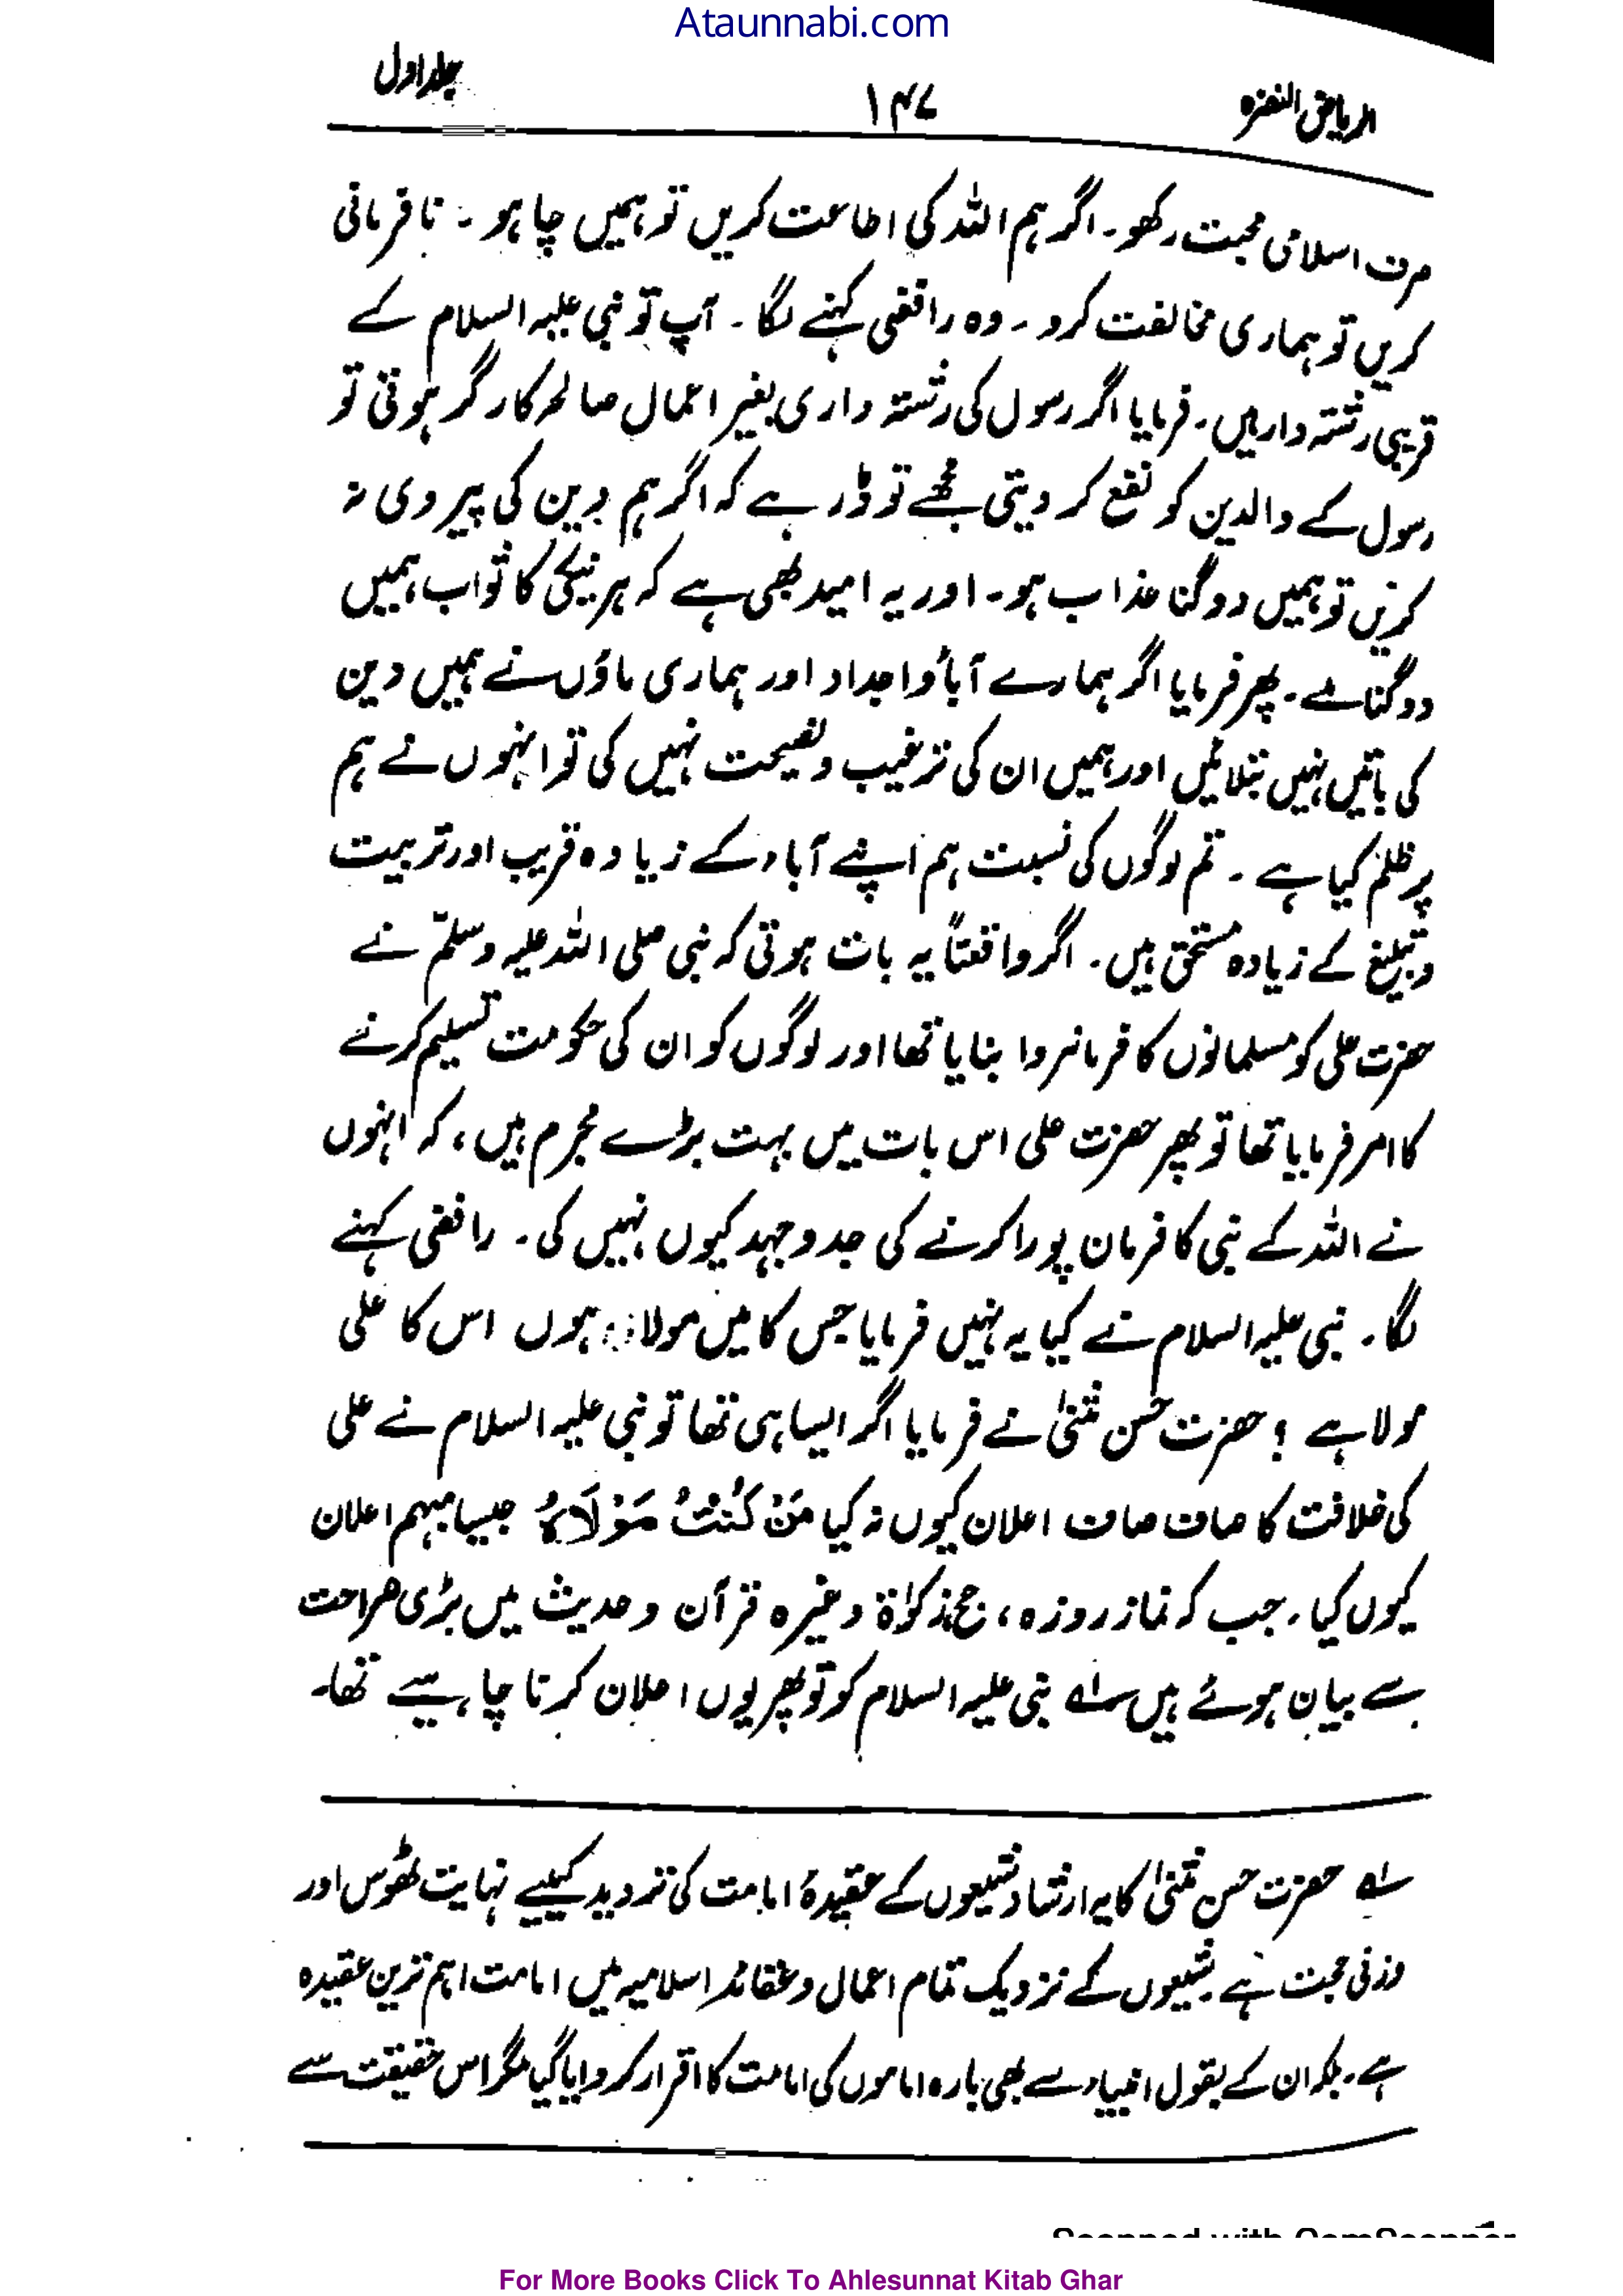 Ataunnabi.com
الریاض النضرہ ۱۴۷ جلد اول
صرف اسلامی محبت رکھو۔ اگر ہم اللہ کی اطاعت کریں تو ہمیں چاہو۔ نافرمانی
کریں تو ہماری مخالفت کرو۔ وہ رافضی کہنے لگا۔ آپ تو نبی علیہ السلام کے
قریبی رشتہ دار ہیں۔ فرمایا اگر رسول کی رشتہ داری بغیر اعمال صالحہ کارگر ہوتی تو
رسول کے والدین کو نفع کر دیتی مجھے تو ڈر ہے کہ اگر ہم دین کی پیروی نہ
کریں تو ہمیں دوگنا عذاب ہو۔ اور یہ امید بھی ہے کہ ہر نیکی کا ثواب ہمیں
دوگنا ملے۔ پھر فرمایا اگر ہمارے آباؤ اجداد اور ہماری ماؤں نے ہمیں دین
کی باتیں نہیں بتلائیں اور ہمیں ان کی ترغیب و نصیحت نہیں کی تو انہوں نے ہم
پر ظلم کیا ہے۔ تم لوگوں کی نسبت ہم اپنے آباء کے زیادہ قریب اور تربیت
و تبلیغ کے زیادہ مستحق ہیں۔ اگر واقعتاً یہ بات ہوتی کہ نبی صلی اللہ علیہ وسلم نے
حضرت علی کو مسلمانوں کا فرمانروا بنایا تھا اور لوگوں کو ان کی حکومت تسلیم کرنے
کا امر فرمایا تھا تو پھر حضرت علی اس بات میں بہت بڑے مجرم ہیں، کہ انہوں
نے اللہ کے نبی کا فرمان پورا کرنے کی جدوجہد کیوں نہیں کی۔ رافضی کہنے
لگا۔ نبی علیہ السلام نے کیا یہ نہیں فرمایا جس کا میں مولا ہوں اس کا علی
مولا ہے ؟ حضرت حسن مثنیٰ نے فرمایا اگر ایسا ہی تھا تو نبی علیہ السلام نے علی
کی خلافت کا صاف صاف اعلان کیوں نہ کیا مَنْ كُنْتُ مَوْلَاهُ جیسا مبہم اعلان
کیوں کیا۔ جب کہ نماز روزہ، حج زکوٰۃ وغیرہ قرآن و حدیث میں بڑی صراحت
سے بیان ہوئے ہیں ؎۱ نبی علیہ السلام کو تو پھر یوں اعلان کرنا چاہیے تھا۔
؎۱ حضرت حسن مثنیٰ کا یہ ارشاد شیعوں کے عقیدۂ امامت کی تردید کیلیے نہایت ٹھوس اور
وزنی حجت ہے۔ شیعوں کے نزدیک تمام اعمال و عقائد اسلامیہ میں امامت اہم ترین عقیدہ
ہے۔ بلکہ ان کے بقول انبیاء سے بھی بارہ اماموں کی امامت کا اقرار کروایا گیا مگر اس حقیقت سے
Scanned with CamScanner
For More Books Click To Ahlesunnat Kitab Ghar